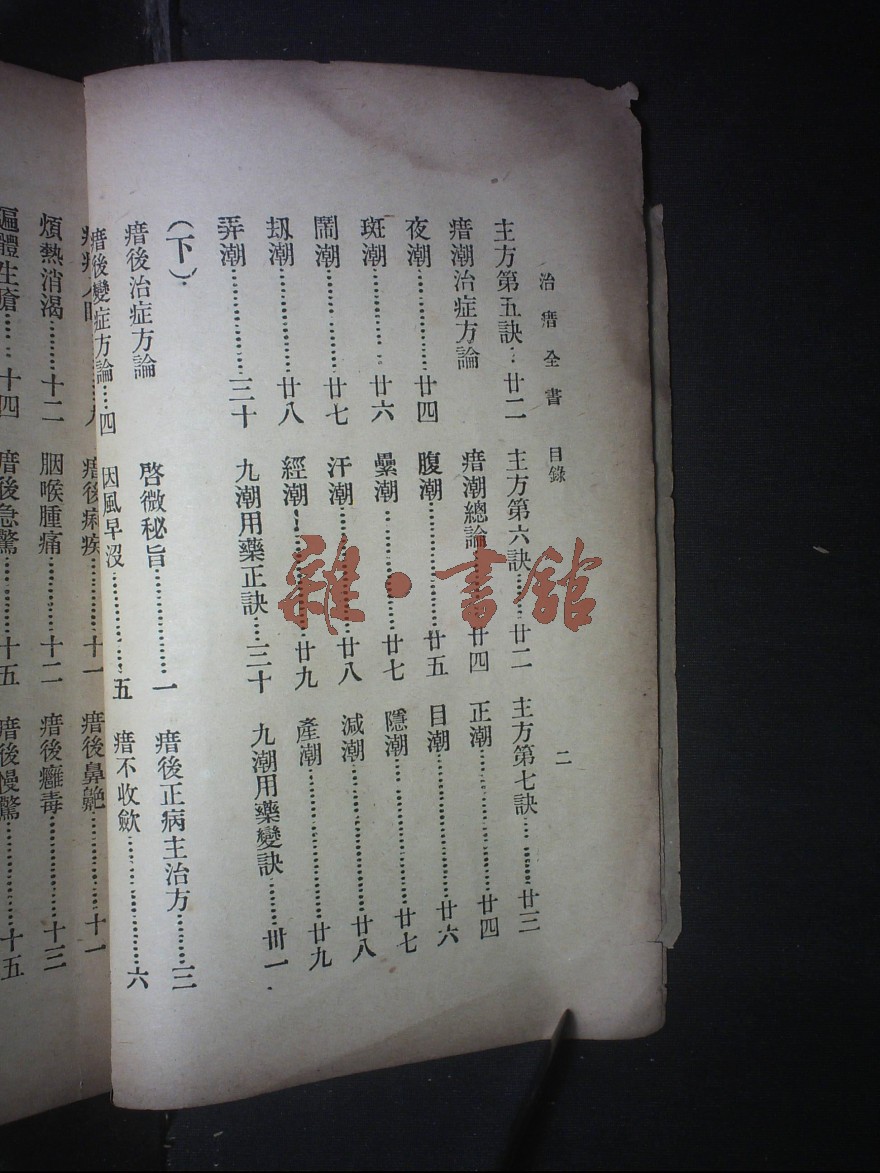 治瘄全書 目錄 二
主方第五訣…廿二 主方第六訣……廿二 主方第七訣……廿三
瘄潮治症方論 瘄潮總論……廿四 正潮……廿四
夜潮……廿四 腹潮……廿五 目潮……廿六
斑潮……廿六 壘潮……廿七 隱潮……廿七
鬧潮……廿七 汗潮……廿八 減潮……廿八
扨潮……廿八 經潮……廿九 產潮……廿九
弄潮……三十 九潮用藥正訣…三十 九潮用藥變訣……卅一
(下)
瘄後治症方論 啓微秘旨……一 瘄後正病主治方……三
瘄後變症方論…四 因風早沒……五 瘄不收歛……六
瘄後痢疾……十一 瘄後鼻衂……十一
煩熱消渴……十二 咽喉腫痛……十二 瘄後癰毒……十三
遍體生瘡……十四 瘄後急驚……十五 瘄後慢驚……十五
雜·書館